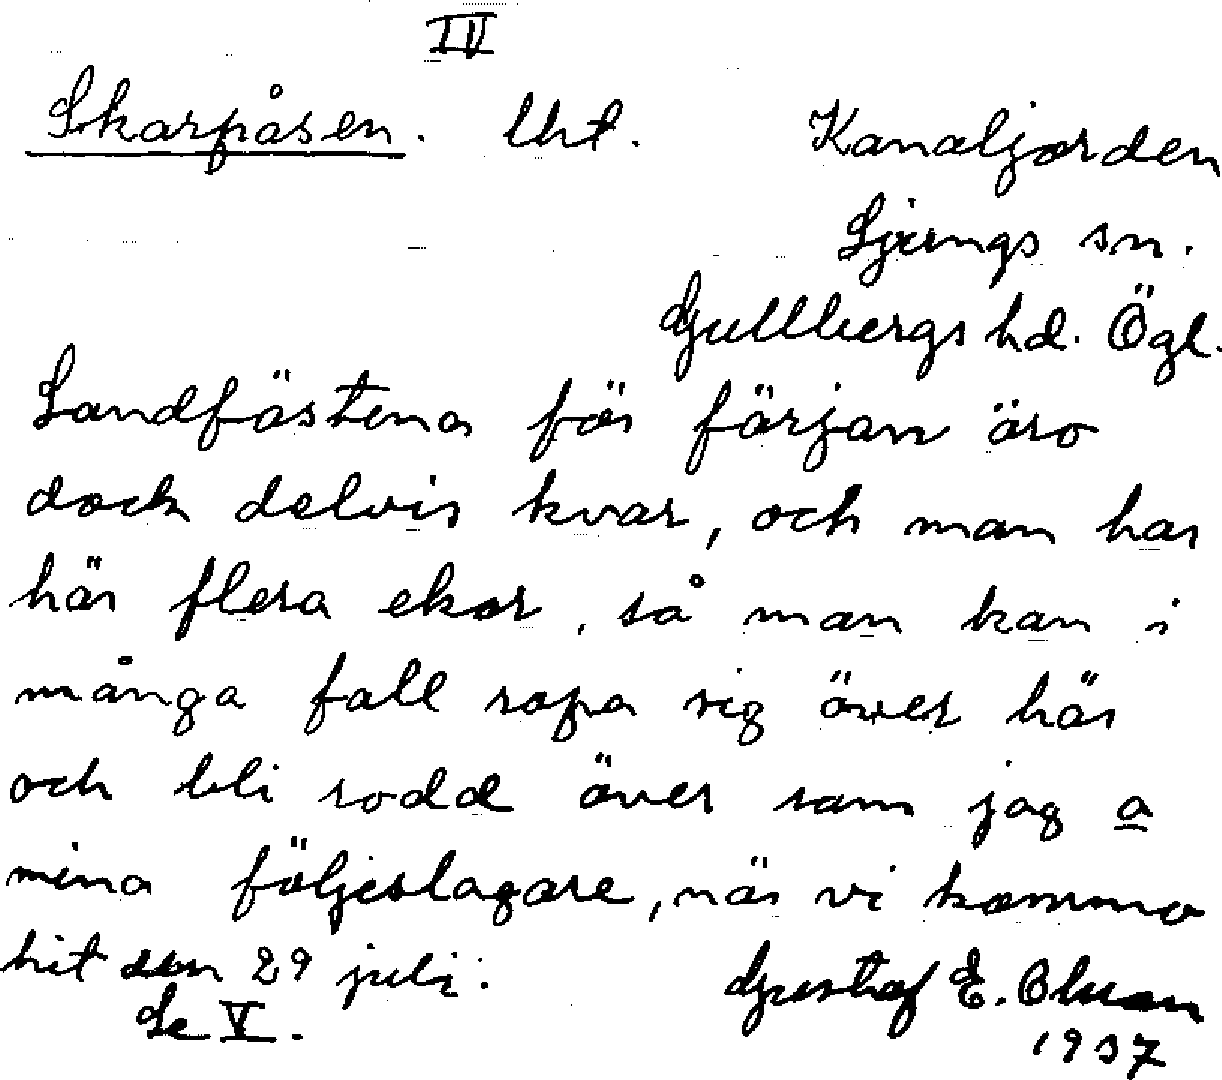 IV
Skarpåsen. Uht. Kanaljorden
Ljungs sn.
Gullbergs hd. Ögl.
Landfästena för färjan äro
dock delvis kvar, och man har
här flera ekor, så man kan i
många fall ropa sig över här
och bli rodd över som jag a
mina följeslagare, när vi kommo
hit den 29 juli. Gustaf E. Olsson
Se V. 1937